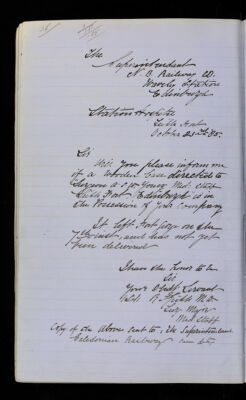 The
Superintendent
N. B. Railway Co.
Waverly Station
Edinburgh
Station Hospital
Leith Fort
October 25th 85.
Sir
Will you please inform me
if a wooden box directed to
Surgeon Young Med. Staff
Leith Fort Edinburgh is in
the Possession of your Company
It left Fort on the
inst. and has not yet
been delivered
I have the honor to be
Sir
Your Obdt Servant
Sur. Major
Med. Staff
Copy of the above sent to the Superintendent
Caledonian Railway same date